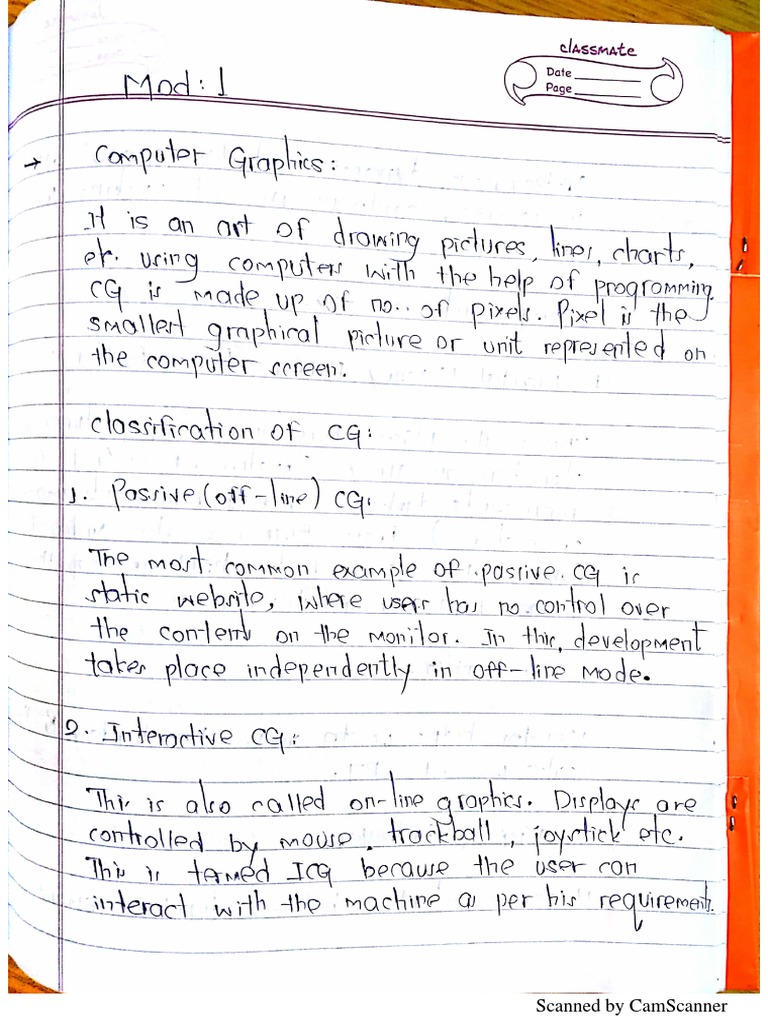 classmate
Date
Page
Mod: 1
→ Computer Graphics:
It is an art of drawing pictures, lines, charts,
etc. using computers with the help of programming.
CG is made up of no. of pixels. Pixel is the
smallest graphical picture or unit represented on
the computer screen.
Classification of CG:
1. Passive (off-line) CG:
The most common example of passive CG is
static website, where users has no control over
the contents on the monitor. In this, development
takes place independently in off-line mode.
2. Interactive CG:
This is also called on-line graphics. Displays are
controlled by mouse, trackball, joystick etc.
This is termed ICG because the user can
interact with the machine as per his requirement.
Scanned by CamScanner